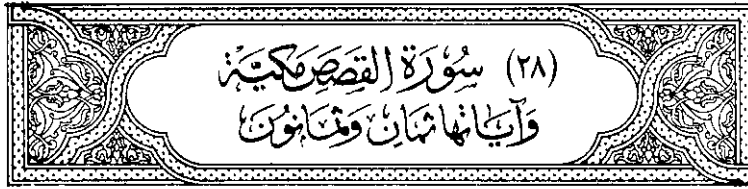 (٢٨) سُورَة القَصَصِ مَكيَّة
وَآيَاتها ثمَانِ وَثمَانونَ